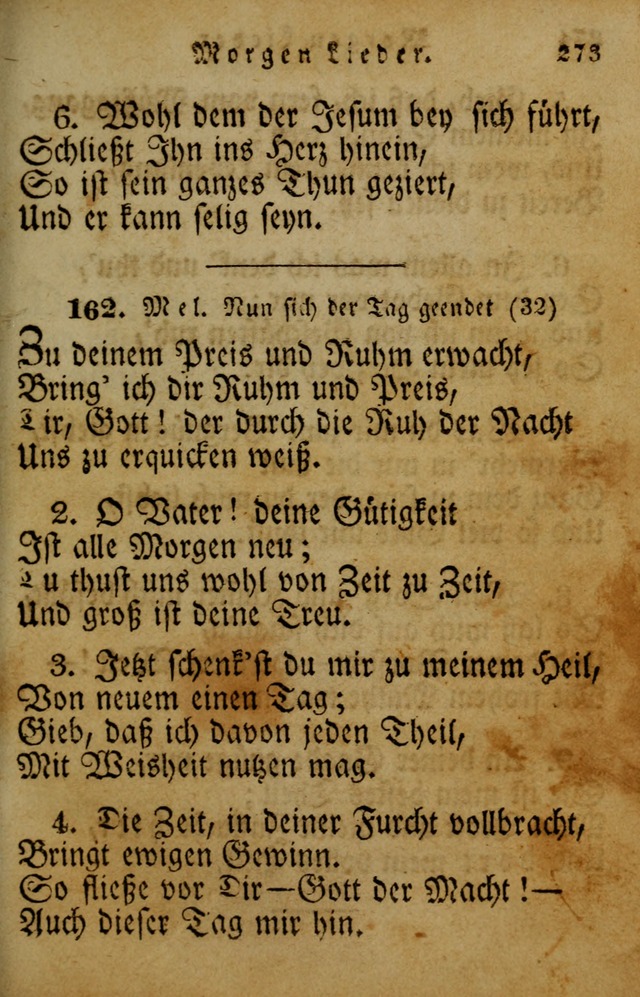 Morgen Lieder. 273
6. Wohl dem der Jesum bey sich führt,
Schließt Ihn ins Herz hinein,
So ist sein ganzes Thun geziert,
Und er kann selig seyn.
162. Mel. Nun sich der Tag geendet (32)
Zu deinem Preis und Ruhm erwacht,
Bring' ich dir Ruhm und Preis,
Dir, Gott! der durch die Ruh der Nacht
Uns zu erquicken weiß.
2. O Vater! deine Gütigkeit
Ist alle Morgen neu;
Du thust uns wohl von Zeit zu Zeit,
Und groß ist deine Treu.
3. Jetzt schenk'st du mir zu meinem Heil,
Von neuem einen Tag;
Gieb, daß ich davon jeden Theil,
Mit Weisheit nutzen mag.
4. Die Zeit, in deiner Furcht vollbracht,
Bringt ewigen Gewinn.
So fließe vor Dir—Gott der Macht!—
Auch dieser Tag mir hin.